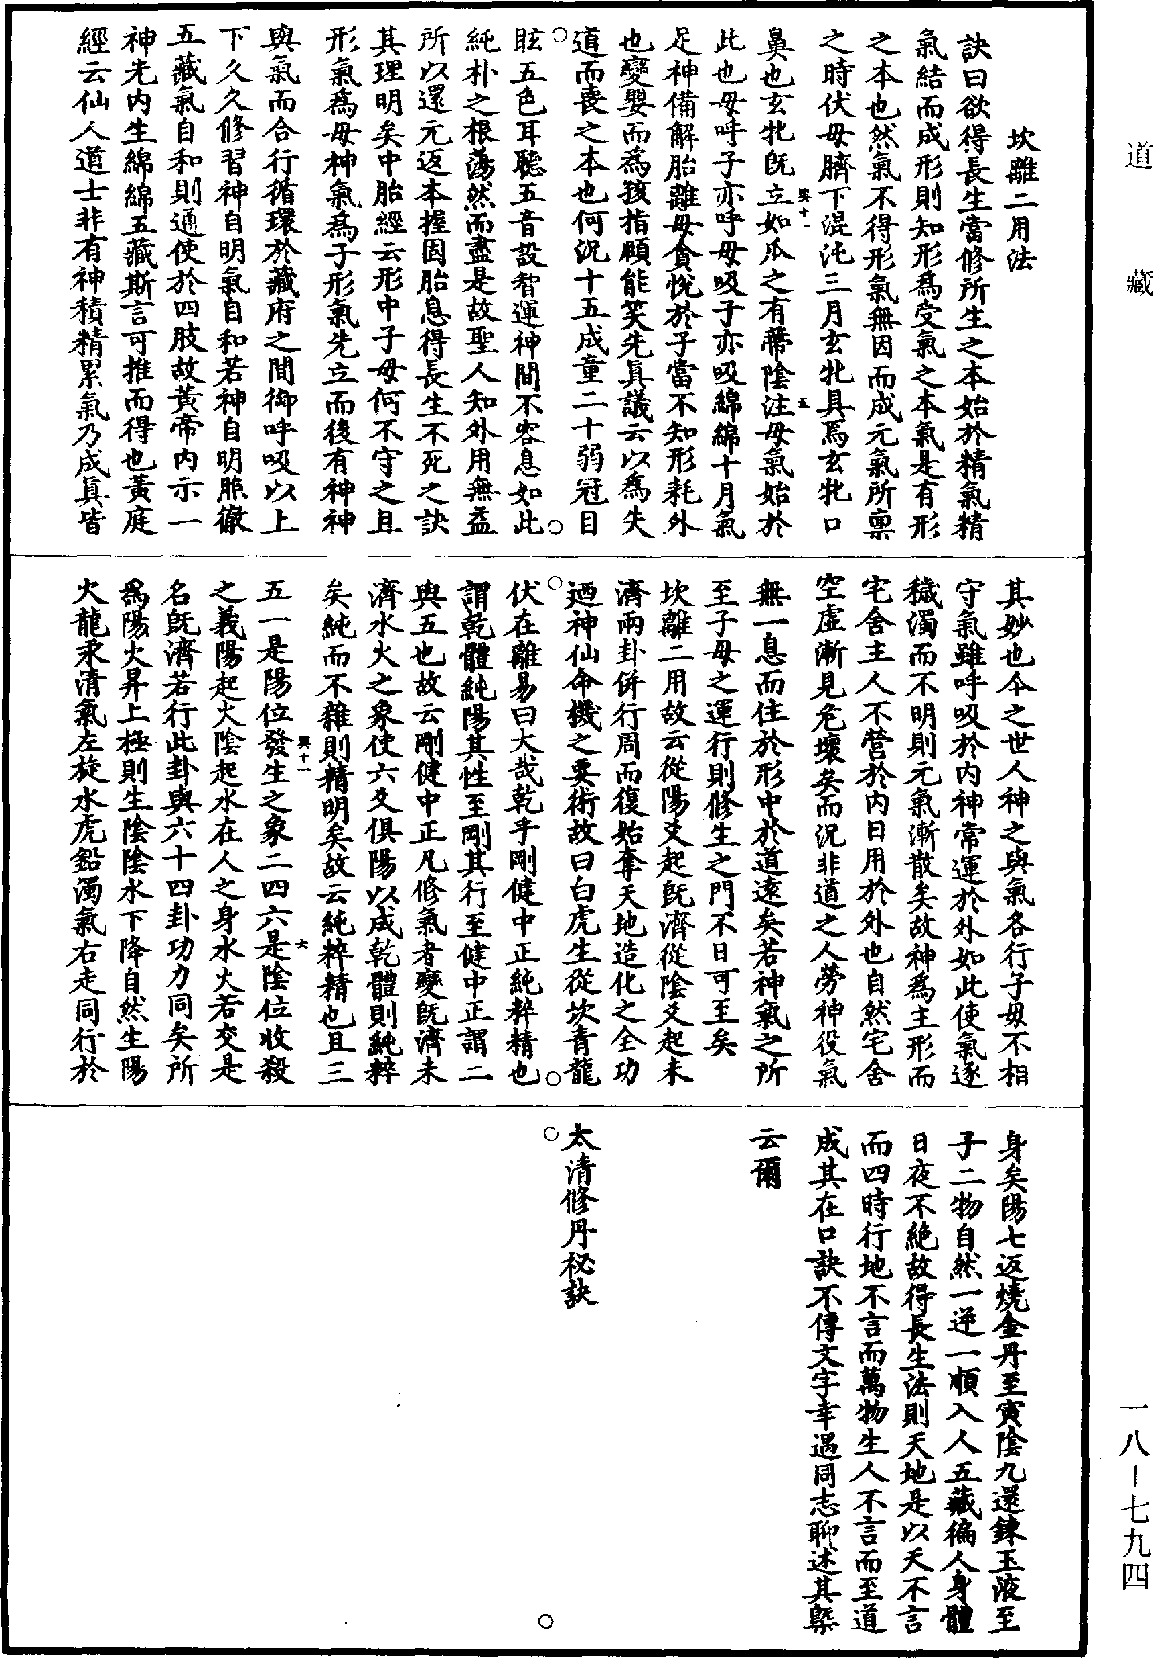 道藏
坎離二用法
訣曰欲得長生當修所生之本始於精氣精
氣結而成形則知形為受氣之本氣是有形
之本也然氣不得形氣無因而成元氣所稟
之時伏母臍下混沌三月玄牝具焉玄牝口
鼻也玄牝既立如瓜之有蔕陰注母氣始於
此也母呼子亦呼母吸子亦吸綿綿十月氣
足神備解胎離母貪悅於子當不知形耗外
也變嬰而為孩指顧能笑先真議云以為失
道而喪之本也何況十五成童二十弱冠目
眩五色耳聽五音設智運神間不容息如此
純朴之根蕩然而盡是故聖人知外用無益
所以還元返本握因胎息得長生不死之訣
其理明矣中胎經云形中子母何不守之且
形氣為母神氣為子形氣先立而後有神神
與氣而合行循環於藏府之間御呼吸以上
下久久修習神自明氣自和若神自明照徹
五藏氣自和則通使於四肢故黃帝內示一
神光內生綿綿五藏斯言可推而得也黃庭
經云仙人道士非有神積精累氣乃成真皆
其妙也今之世人神之與氣各行子母不相
守氣雖呼吸於內神常運於外如此使氣逐
穢濁而不明則元氣漸散矣故神為主形而
宅舍主人不營於內日用於外也自然宅舍
空虛漸見危壞矣而況非道之人勞神役氣
無一息而住於形中於道遠矣若神氣之所
至子母之運行則修生之門不日可至矣
坎離二用故云從陽爻起既濟從陰爻起未
濟兩卦併行周而復始奪天地造化之全功
迺神仙命機之要術故曰白虎生從坎青龍
伏在離易曰大哉乾乎剛健中正純粹精也
謂乾體純陽其性至剛其行至健中正謂二
與五也故云剛健中正凡修氣者變既濟未
濟水火之象使六爻俱陽以成乾體則純粹
矣純而不雜則精明矣故云純粹精也且三
五一是陽位發生之象二四六是陰位收殺
之義陽起火陰起水在人之身水火若交是
名既濟若行此卦與六十四卦功力同矣所
為陽火昇上極則生陰陰水下降自然生陽
火龍汞清氣左旋水虎鉛濁氣右走同行於
身矣陽七返燒金丹至寅陰九還鍊玉液至
子二物自然一逆一順入人五藏徧人身體
日夜不絶故得長生法則天地是以天不言
而四時行地不言而萬物生人不言而至道
成其在口訣不傳文字幸遇同志聊述其槩
云爾
太清修丹秘訣
一八—七九四